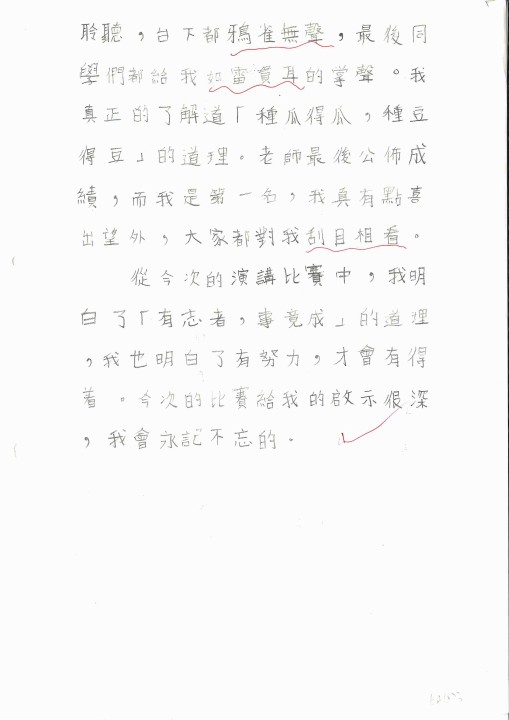 聆聽，台下都鴉雀無聲，最後同
學們都給我如雷貫耳的掌聲。我
真正的了解道「種瓜得瓜，種豆
得豆」的道理。老師最後公佈成
績，而我是第一名，我真有點喜
出望外，大家都對我刮目相看。
從今次的演講比賽中，我明
白了「有志者，事竟成」的道理
，我也明白了有努力，才會有得
着。今次的比賽給我的啟示很深
，我會永記不忘的。